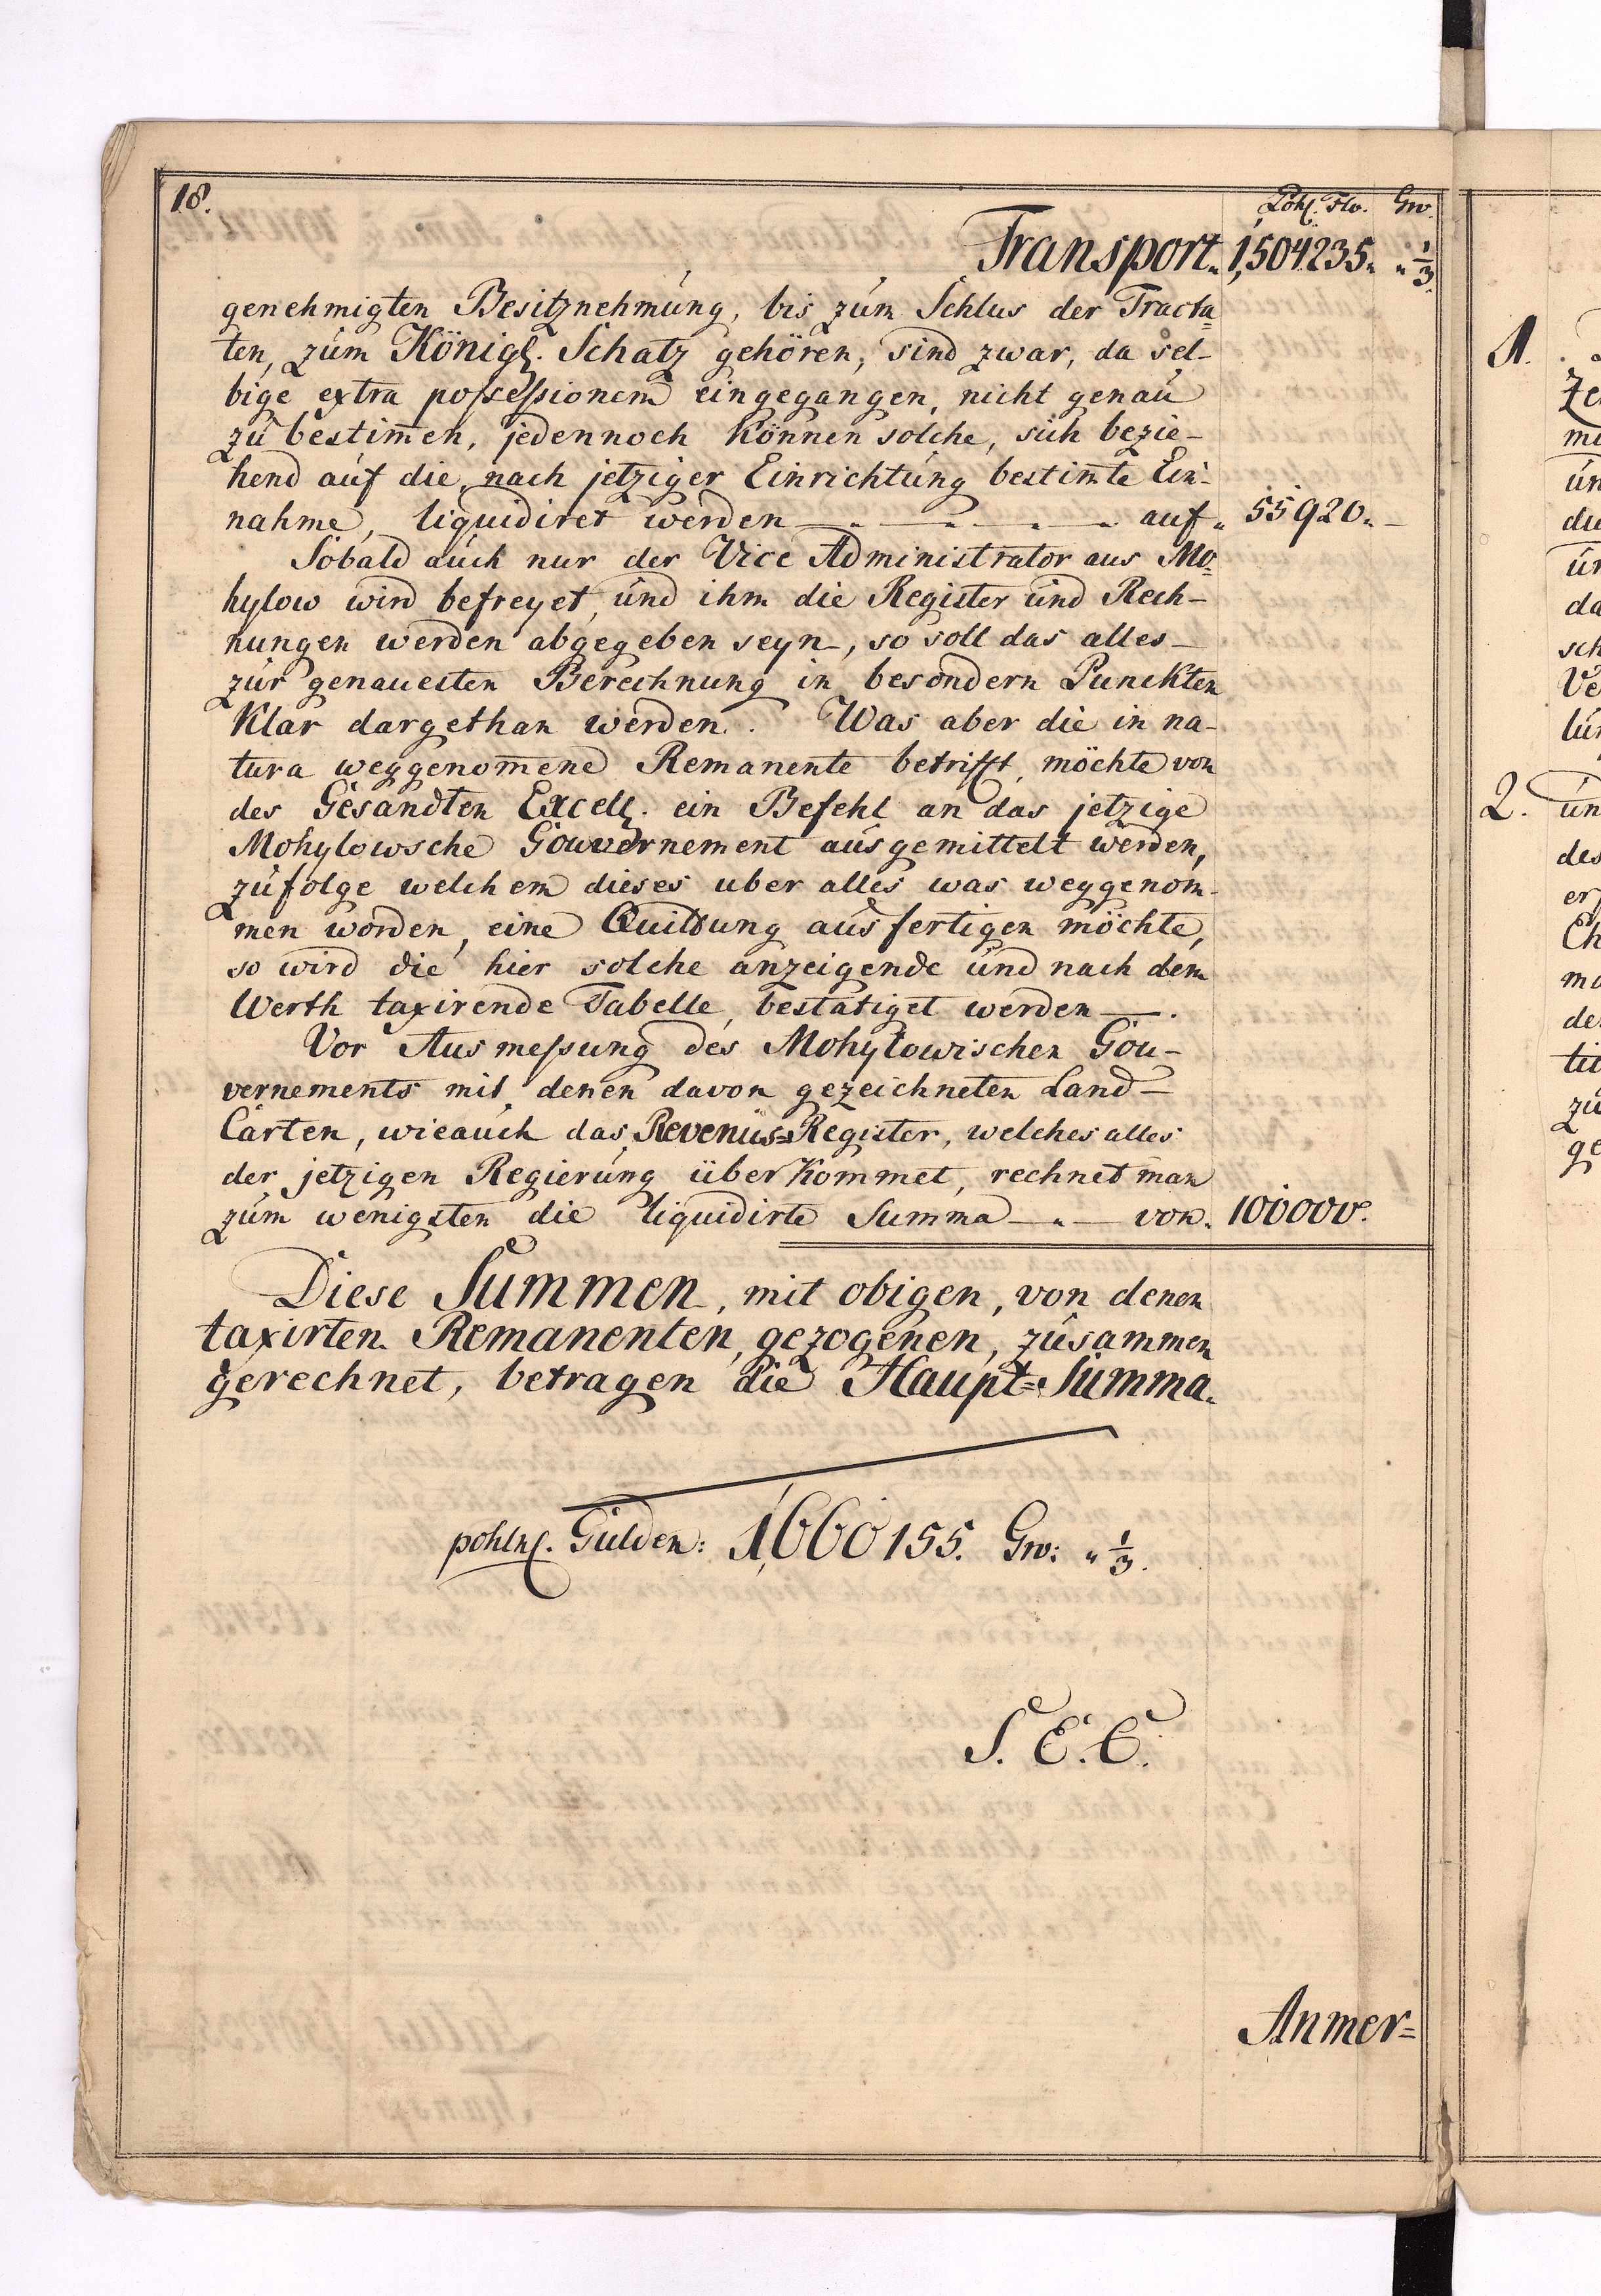 18.
Pohl. Flo. Gro.
Transport. 1,504235. „ 1/3.
genehmigten Besitznehmung, bis zum Schlus der Tracta=
ten, zum Königl. Schatz gehören, sind zwar, da sel-
bige extra possessionem eingegangen, nicht genau
zu bestim̄en, jedennoch können solche, sich bezie-
hend auf die, nach jetziger Einrichtung bestim̄te Ein-
nahme, liquidiret werden — . — . — . — . auf „ 55920. —
Sobald auch nur der Vice Administrator aus Mo=
hylow wird befreyet, und ihm die Register und Rech-
nungen werden abgegeben seyn, so soll das alles
zur genauesten Berechnung in besondern Punckten
klar dargethan werden. Was aber die in na-
tura weggenom̄ene Remanente betrifft, möchte von
des Gesandten Excell. ein Befehl an das jetzige
Mohylowsche Gouvernement ausgemittelt werden,
zufolge welchem dieses uber alles was weggenom-
men worden, eine Quittung ausfertigen möchte,
so wird die hier solche anzeigende und nach dem
Werth taxirende Tabelle, bestätiget werden — .
Vor Ausmessung des Mohylowischen Gou-
vernements mit denen davon gezeichneten Land-
Carten, wie auch das Revenüs=Register, welches alles
der jetzigen Regierung überkommet, rechnet man
zum wenigsten die liquidirte Summa — „ — von. 100000.
Diese Summen, mit obigen, von denen
taxirten Remanenten, gezogenen, zusammen
gerechnet, betragen die Haupt=Summa.
pohln. Gulden: 1,660155. Gro: „ 1/3.
S. E. C.
Anmer=
1.
Ze
mi
un
du
un
da
sch
Ve
lun
2. un
des
er
Ch
ma
de
tit
zu
ge